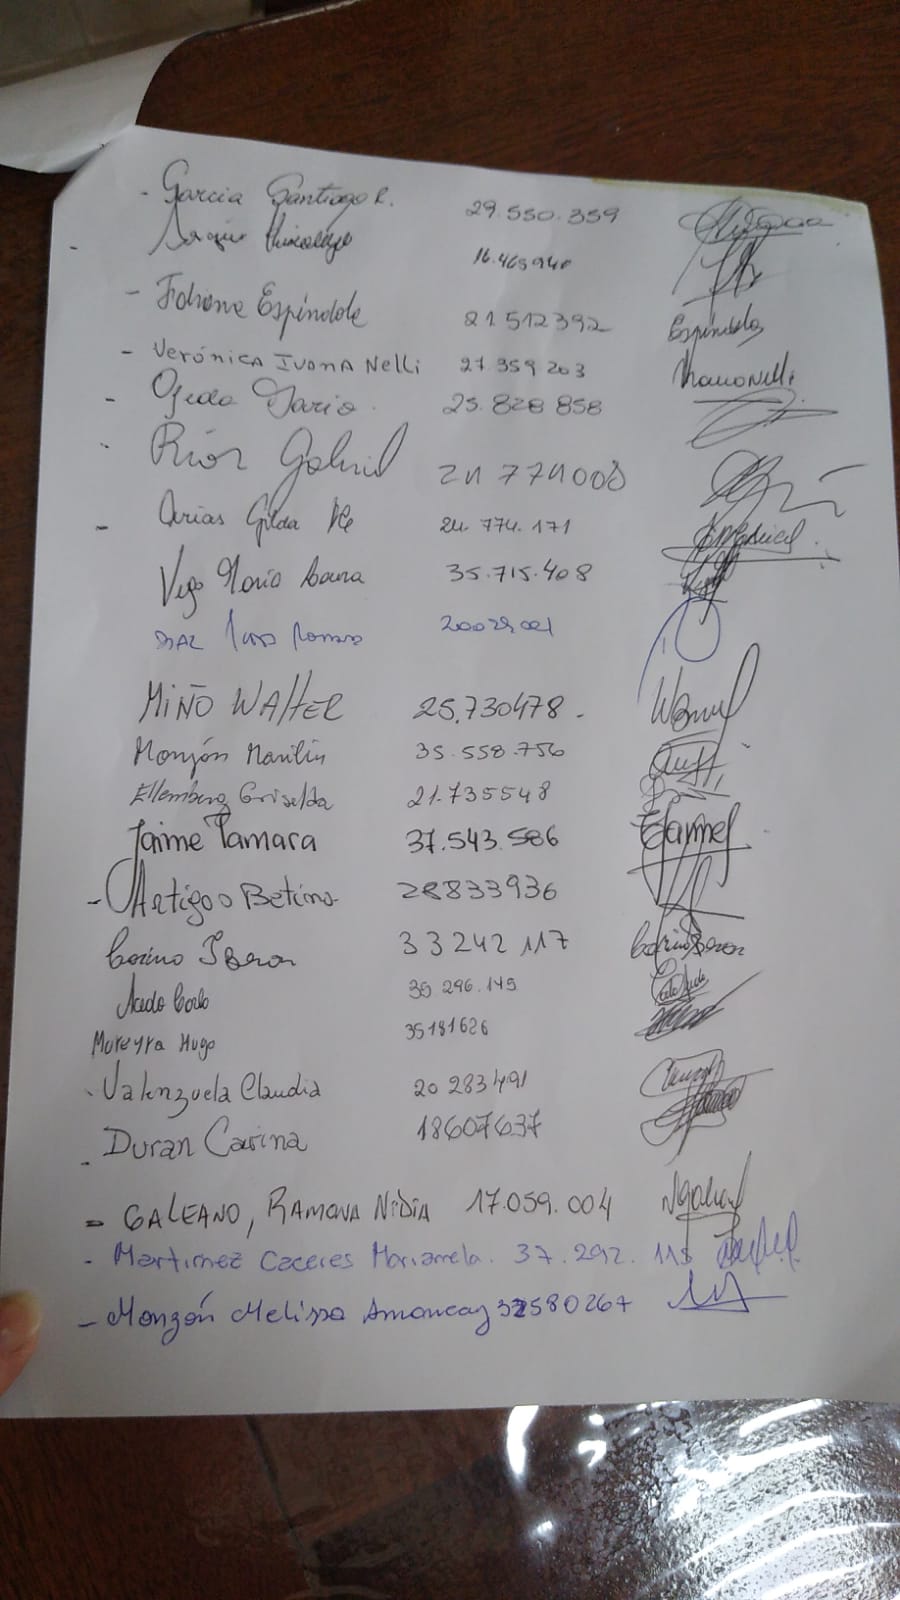 - Garcia Santiago R. 29.550.359
- Sergio 16.465940
- Fabiana Espíndola 21512392 Espíndola
- Verónica Ivana Nelli 27 359 203 Ivana Nelli
- Ojeda Dario. 25.828 858
- Ríos Gabriel 21 771008
- Arias Gilda 24.774.171
Vega María Laura 35.715.408
DIAZ Romano 20029001
MIÑO WALTER 25.730478.
Monzón Marilin 35.558.756
Ellemberg Griselda 21.735548
Jaime Tamara 37.543.586
- Artigoo Betina 28833936
Corina I Beron 33242 117 Corina Beron
Acedo Carlo 35 296.145
Moreyra Hugo 35181626
- Valenzuela Claudia 20 283491
- Duran Carina 18607637
- GALEANO, RAMONA NIDIA 17.059.004
- Martinez Caceres Marianela. 37.292.115
- Monzón Melissa Amancay 32580267